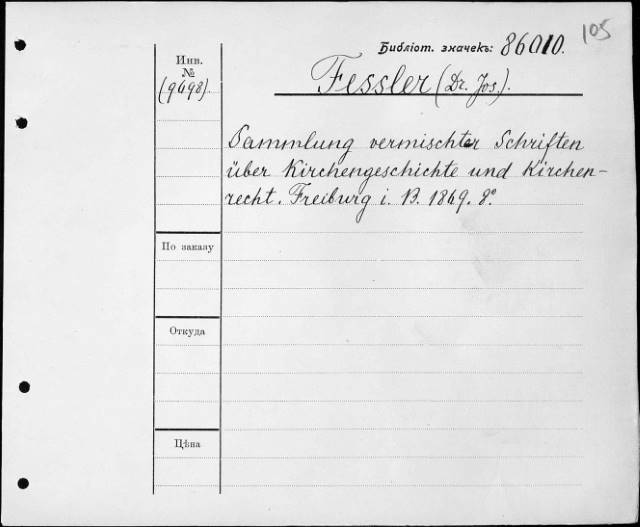 105
Библіот. значекъ: 86010.
Инв.
№
(9698).
Fessler (Dr. Jos.).
Sammlung vermischter Schriften
über Kirchengeschichte und Kirchen-
recht. Freiburg i. B. 1869. 8°
По заказу
Откуда
Цѣна